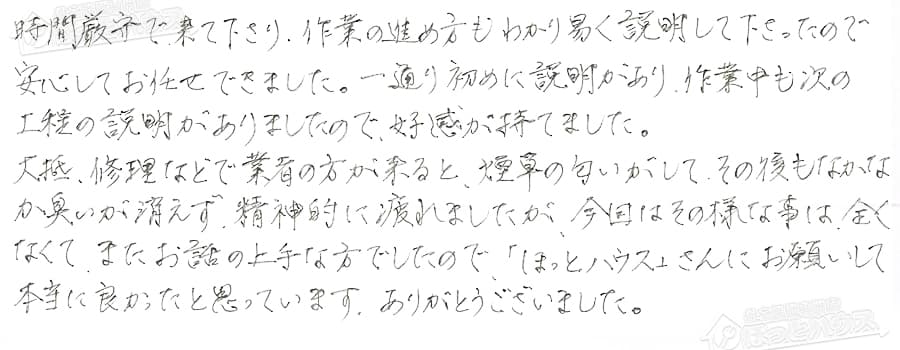 時間厳守で来て下さり、作業の進め方もわかり易く説明して下さったので
安心してお任せできました。一通り初めに説明があり、作業中も次の
工程の説明がありましたので、好感が持てました。
大抵、修理などで業者の方が来ると、煙草の匂いがして、その後もなかなか
か臭いが消えず、精神的に疲れましたが、今回はその様な事は、全く
なくて、またお話の上手な方でしたので、「ほっとハウス」さんにお願いして
本当に良かったと思っています。ありがとうございました。
ほっとハウス